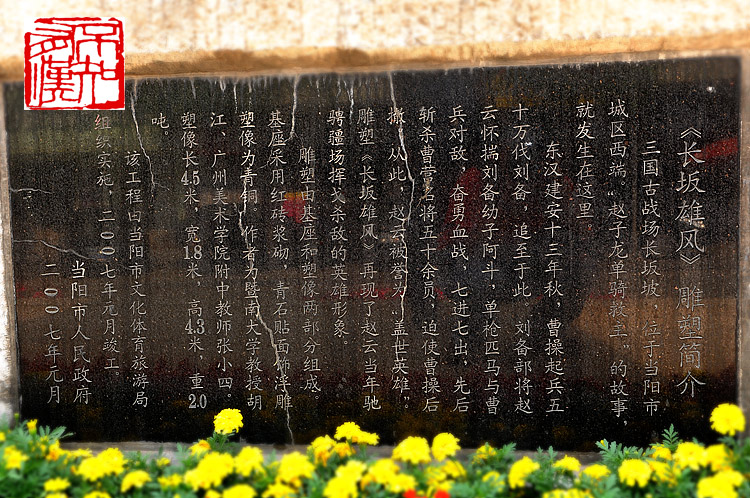 《长坂雄风》雕塑简介
三国古战场长坂坡，位于当阳市
城区西端。“赵子龙单骑救主”的故事，
就发生在这里。
东汉建安十三年秋，曹操起兵五
十万伐刘备，追至于此。刘备部将赵
云怀揣刘备幼子阿斗，单枪匹马与曹
兵对敌，奋勇血战，七进七出，先后
斩杀曹营名将五十余员，迫使曹操后
撤。从此，赵云被誉为“盖世英雄”。
雕塑《长坂雄风》再现了赵云当年驰
骋疆场挥戈杀敌的英雄形象。
雕塑由基座和塑像两部分组成。
基座采用红砖浆砌，青石贴面饰浮雕
塑像为青铜。作者为暨南大学教授胡
江、广州美术学院附中教师张小四。
塑像长4.5米，宽1.8米，高4.3米，重2.0
吨。
该工程由当阳市文化体育旅游局
组织实施，二00七年元月竣工。
当阳市人民政府
二00七年元月